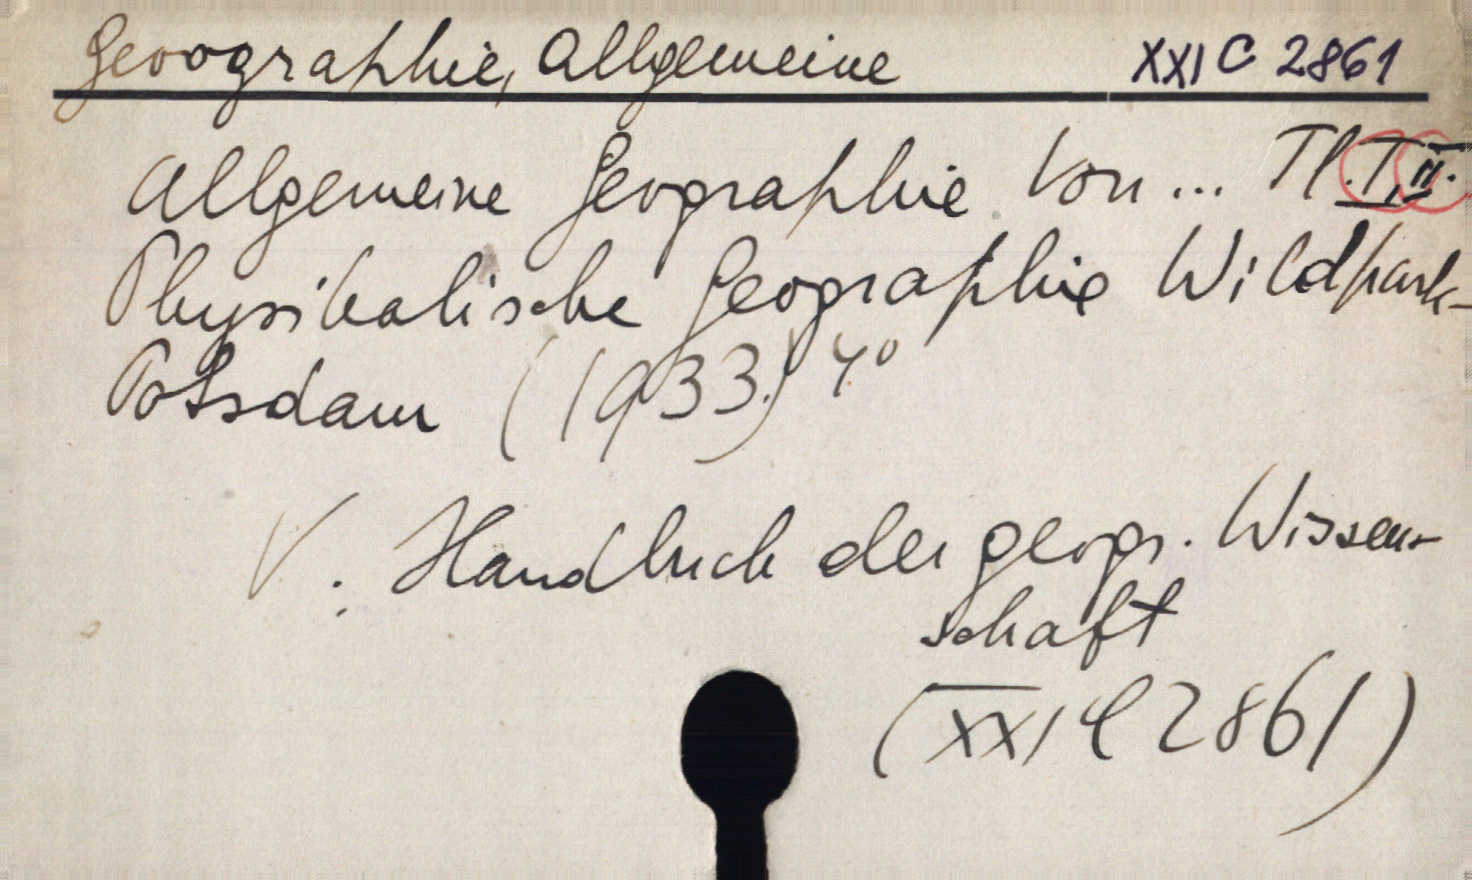 Geographie, Allgemeine XXI C 2861
Allgemeine Geographie. Von ... Tl. I, II.
Physikalische Geographie Wildpark-
Potsdam (1933.) 4°
V. Handbuch der geogr. Wissen-
schaft
(XXI C 2861)